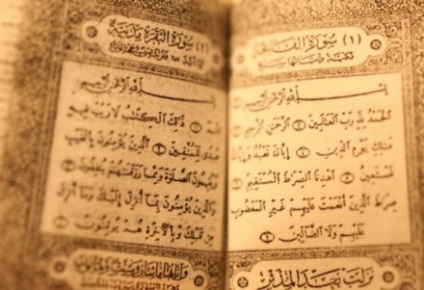 (١) سُورَةُ الفَاتِحَة
مكية وآياتها سبع
بِسْمِ اللَّهِ الرَّحْمَٰنِ الرَّحِيمِ
الْحَمْدُ لِلَّهِ رَبِّ الْعَالَمِينَ ٢ الرَّحْمَٰنِ الرَّحِيمِ
مَلِكِ يَوْمِ الدِّينِ ٤ إِيَّاكَ نَعْبُدُ وَإِيَّاكَ
نَسْتَعِينُ ٥ اهْدِنَا الصِّرَاطَ الْمُسْتَقِيمَ ٦
صِرَاطَ الَّذِينَ أَنْعَمْتَ عَلَيْهِمْ غَيْرِ الْمَغْضُوبِ
عَلَيْهِمْ وَلَا الضَّالِّينَ ٧
نزلت بعد المدثر
(٢) سُورَةُ البَقَرَةِ مَدَنِيَّة
بِسْمِ اللَّهِ الرَّحْمَٰنِ الرَّحِيمِ
ذَٰلِكَ الْكِتَٰبُ لَا رَيْبَ فِيهِ
هُدًى لِّلْمُتَّقِينَ ٢ الَّذِينَ يُؤْمِنُونَ بِالْغَيْبِ
وَيُقِيمُونَ الصَّلَوٰةَ وَمِمَّا رَزَقْنَٰهُمْ يُنفِقُونَ ٣
وَالَّذِينَ يُؤْمِنُونَ بِمَا أُنزِلَ إِلَيْكَ وَمَا أُنزِلَ
مِن قَبْلِكَ وَبِالْآخِرَةِ هُمْ يُوقِنُونَ